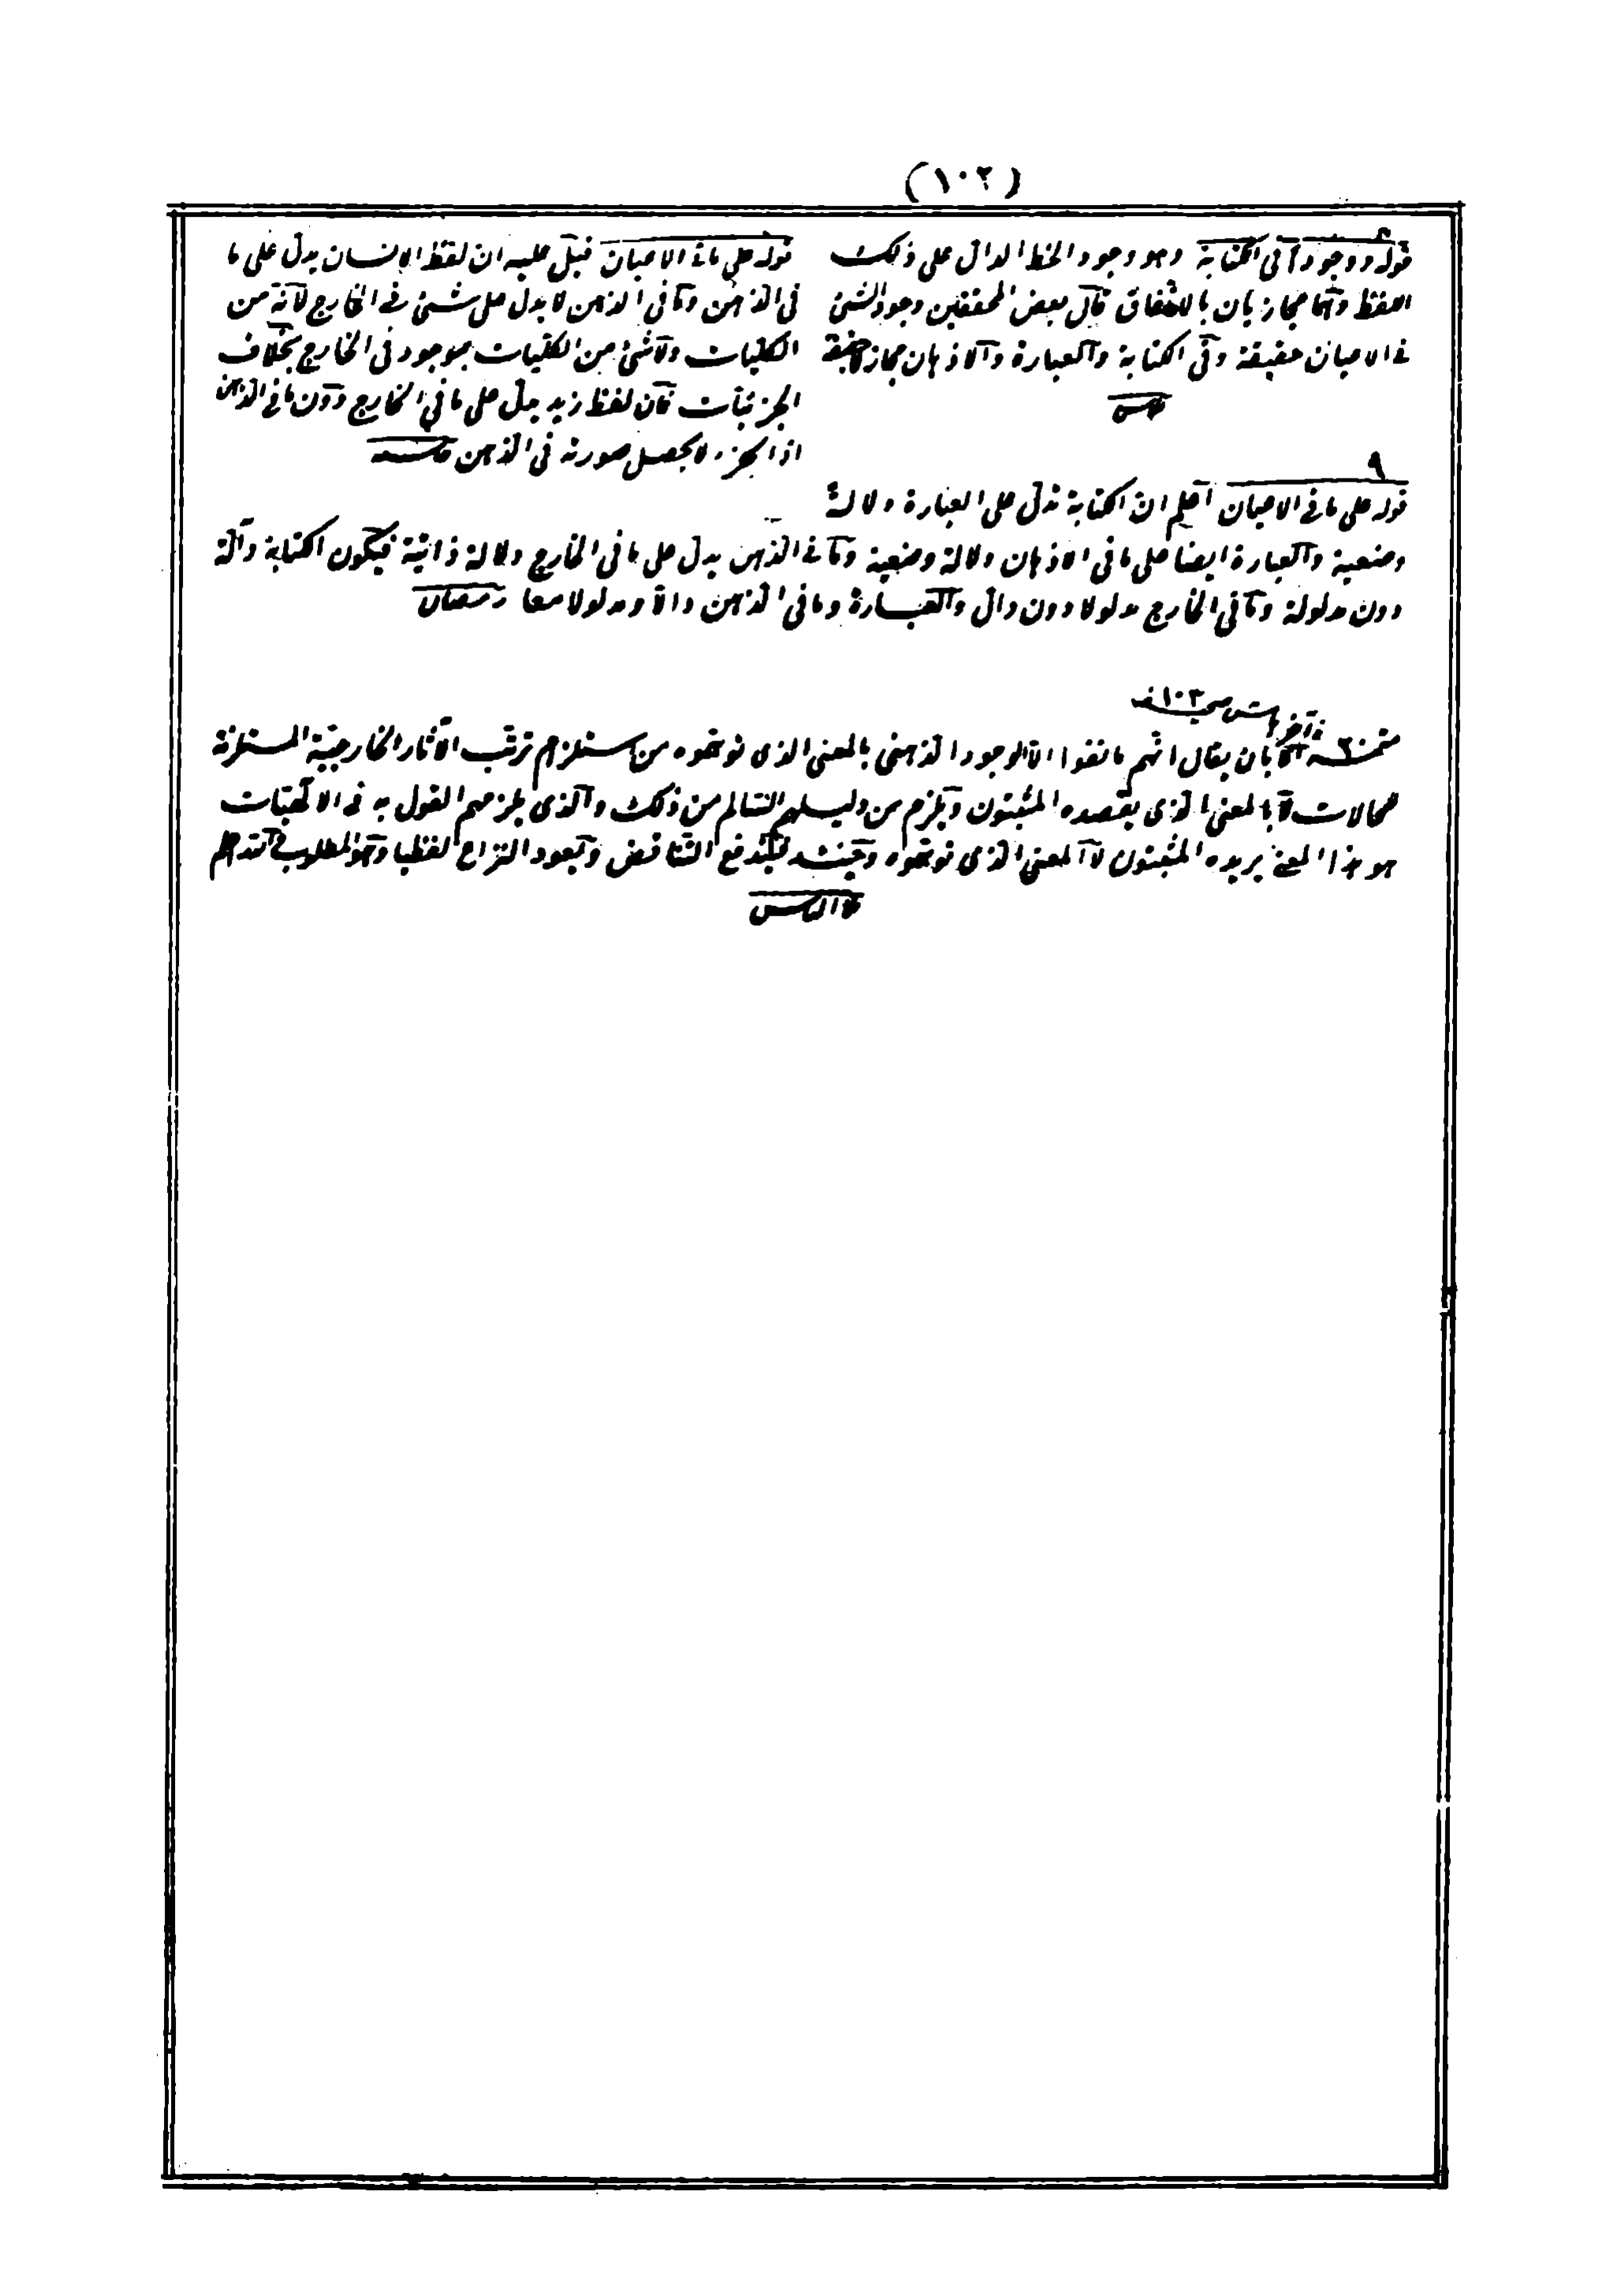 (١٠٢)
قوله ووجودا فى الكتابة وهو وجود الخط الدال على ذلك
اللفظ وهما مجازيان بالاتفاق قال بعض المحققين وجود الشئ
فى الاعيان حقيقة وفى الكتابة والعبارة والاذهان مجاز لا حقيقة
قوله على ما فى الاعيان قيل عليه ان لفظ الانسان يدل على ما
فى الذهن وما فى الذهن لا يدل على شئ فى الخارج لانه من
الكليات ولا شئ من الكليات بموجود فى الخارج بخلاف
الجزئيات فان لفظ زيد يدل على ما فى الخارج دون ما فى الذهن
اذ الجزء لا يحصل صورته فى الذهن
٩
قوله على ما فى الاعيان اعلم ان الكتابة تدل على العبارة دلالة
وضعية والعبارة ايضا على ما فى الاذهان دلالة وضعية وما فى الذهن يدل على ما فى الخارج دلالة ذاتية فيكون الكتابة دالة
دون مدلولة وما فى الخارج مدلولا دون دال والعبارة وما فى الذهن دالا ومدلولا معا رمضان
١٠٣
بان يقال انهم ما نفوا الا الوجود الذهنى بالمعنى الذى توهموه من استلزام ترتب الآثار الخارجية المستلزمة
محالات لا بالمعنى الذى يقصده المثبتون ويلزم من دليلهم السالم من ذلك والذى يلزمهم القول به فى الالهيات
هو هذا المعنى يريده المثبتون لا المعنى الذى توهموه وحينئذ فيندفع التناقض ويعود النزاع لفظيا وهو المطلوب